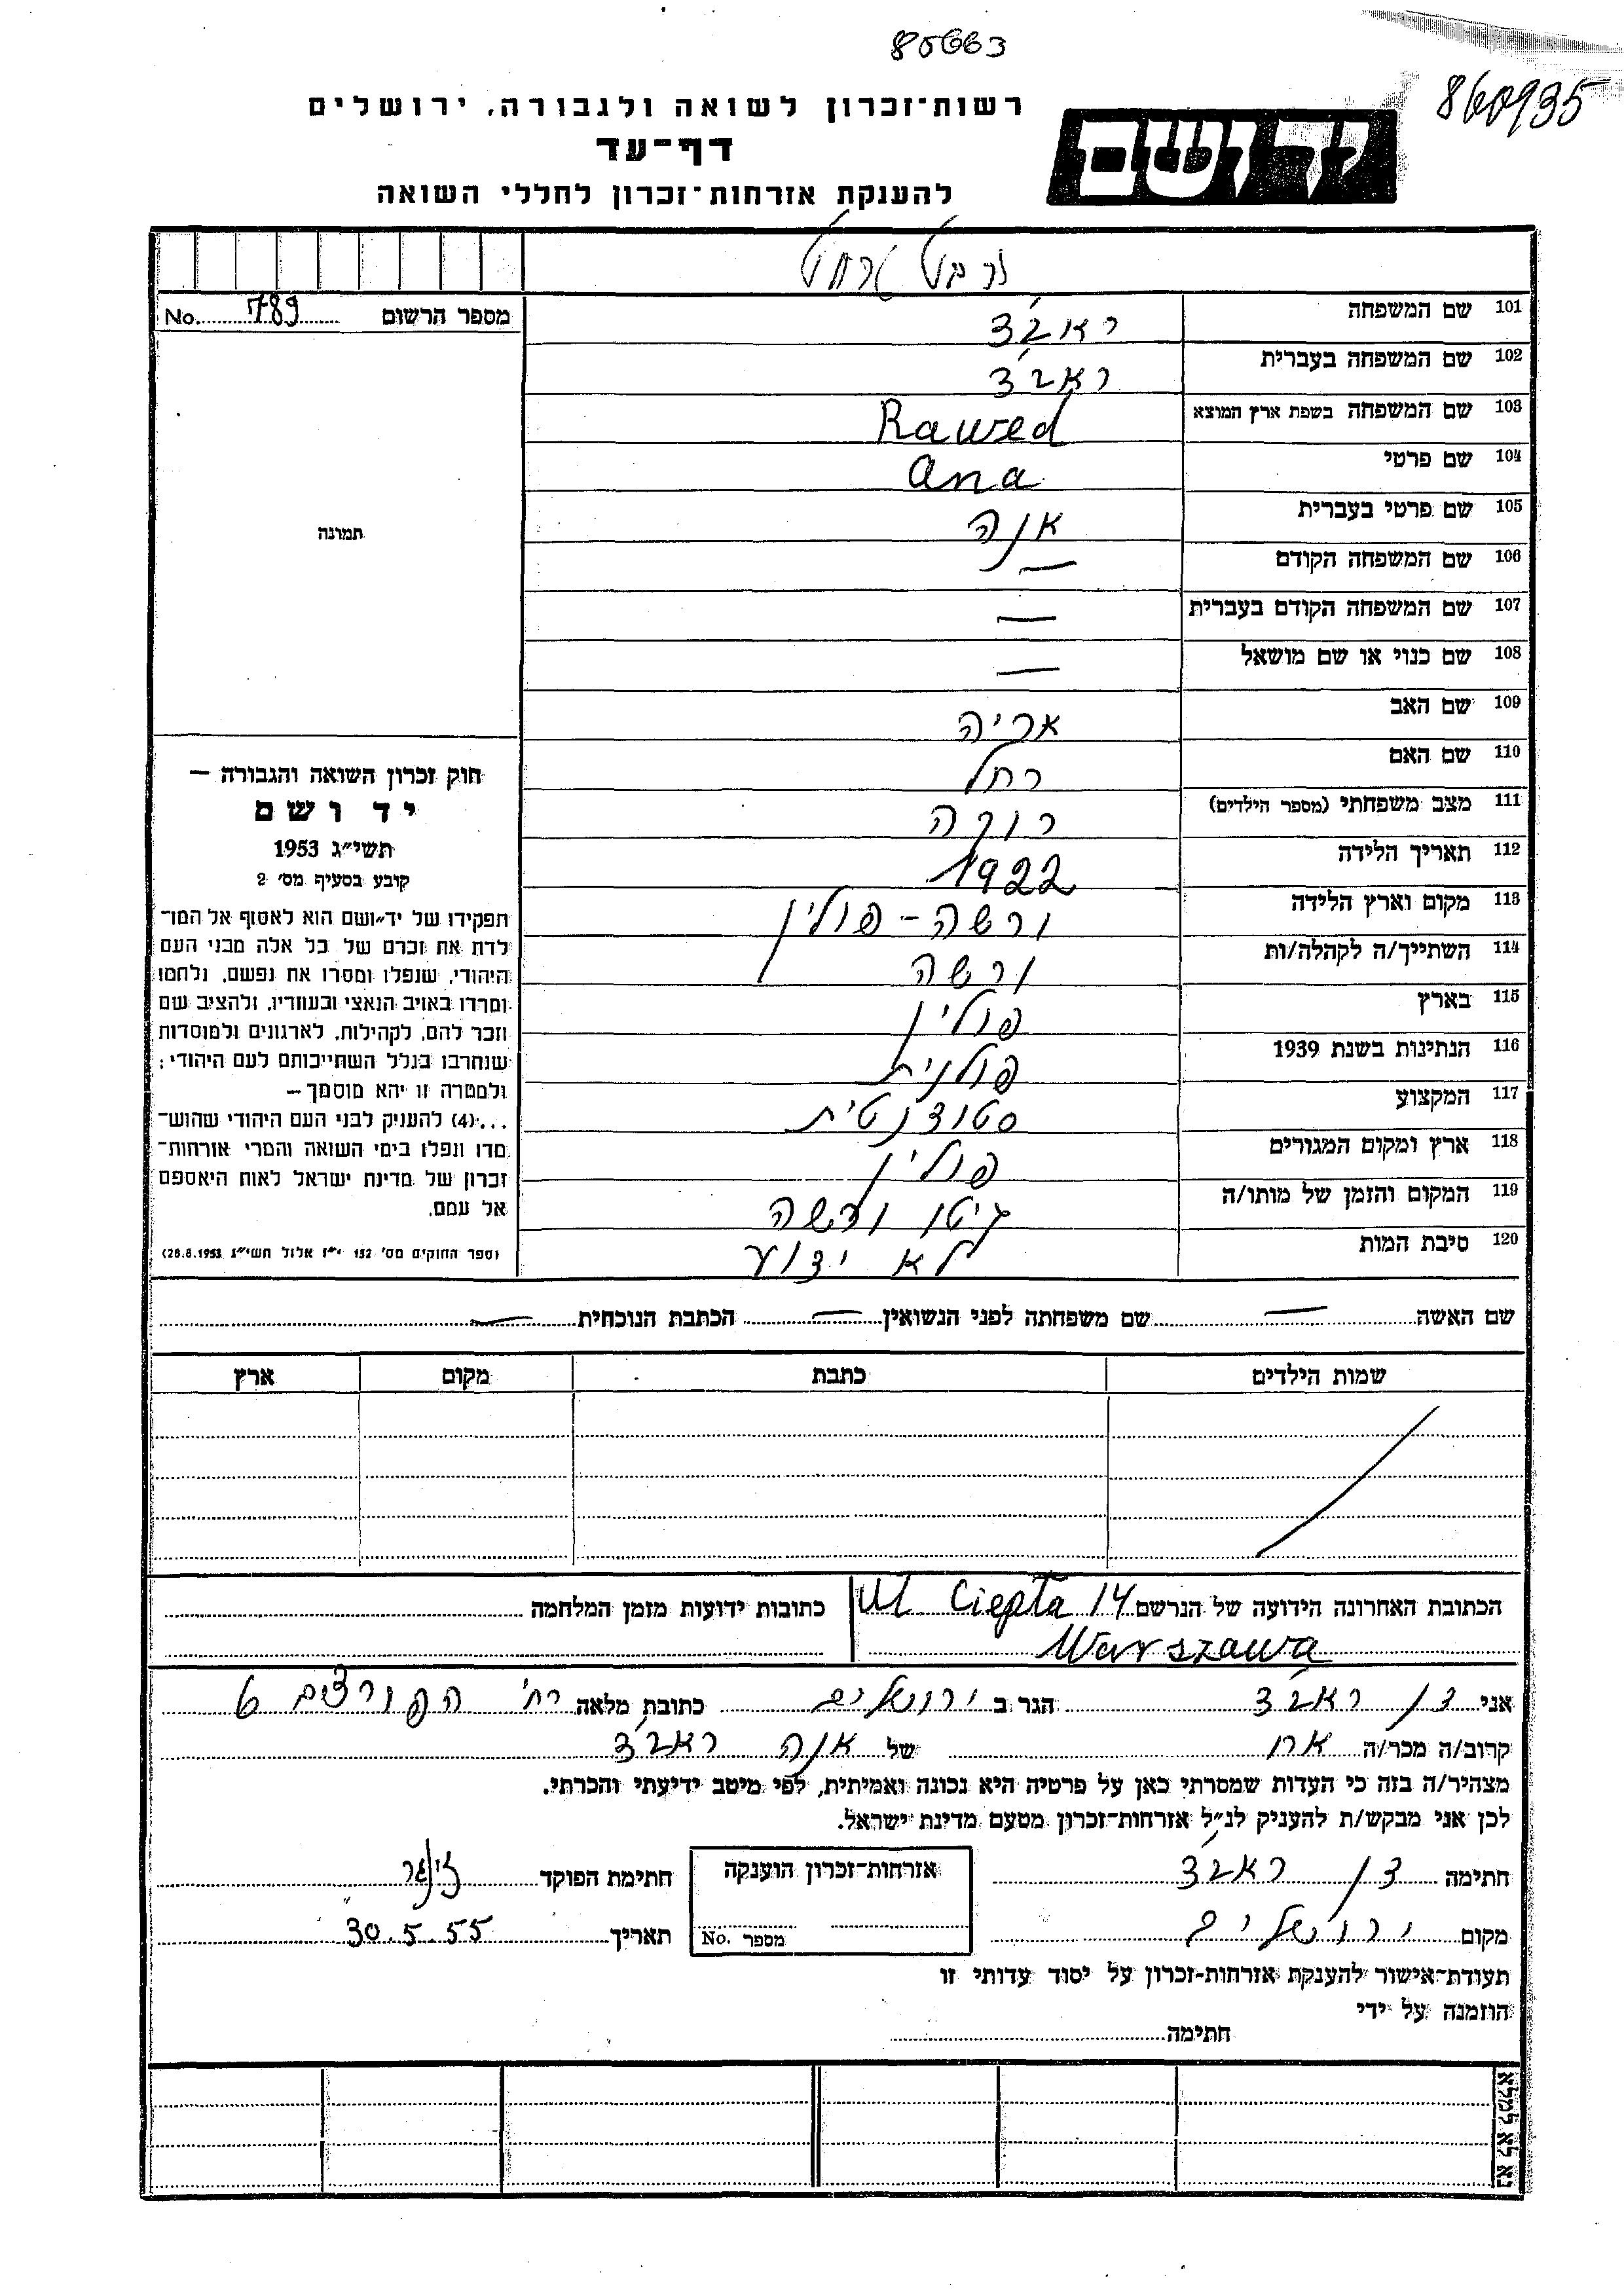 80663
860935
רשות־זכרון לשואה ולגבורה, ירושלים
דף־עד
להענקת אזרחות־זכרון לחללי השואה
יד ושם
מספר הרשום 789 No.
101 שם המשפחה ראב׳ד
102 שם המשפחה בעברית ראב׳ד
103 שם המשפחה בשפת ארץ המוצא Rawed
104 שם פרטי Ana
105 שם פרטי בעברית אנה
106 שם המשפחה הקודם —
107 שם המשפחה הקודם בעברית —
108 שם כנוי או שם מושאל —
109 שם האב אריה
110 שם האם רחל
111 מצב משפחתי (מספר הילדים) רוקה
112 תאריך הלידה 1922
113 מקום וארץ הלידה ורשה - פולין
114 השתייך/ה לקהלה/ות ורשה
115 בארץ פולין
116 הנתינות בשנת 1939 פולנית
117 המקצוע סטודנטית
118 ארץ ומקום המגורים פולין
119 המקום והזמן של מותו/ה גיטו ורשה
120 סיבת המות לא ידוע
תמונה
חוק זכרון השואה והגבורה —
יד ושם
תשי״ג 1953
קובע בסעיף מס׳ 2
תפקידו של יד־ושם הוא לאסוף אל המו־
לדת את זכרם של כל אלה מבני העם
היהודי, שנפלו ומסרו את נפשם, נלחמו
ומרדו באויב הנאצי ובעוזריו, ולהציב שם
וזכר להם, לקהילות, לארגונים ולמוסדות
שנחרבו בגלל השתייכותם לעם היהודי;
ולמטרה זו יהא מוסמך —
...(4) להעניק לבני העם היהודי שהוש־
מדו ונפלו בימי השואה והמרי אזרחות־
זכרון של מדינת ישראל לאות היאספם
אל עמם.
(ספר החוקים מס׳ 132 י״ז אלול תשי״ג 28.8.1953)
שם האשה — שם משפחתה לפני הנשואין — הכתבת הנוכחית —
שמות הילדים כתבת מקום ארץ
הכתובת האחרונה הידועה של הנרשם Ul Ciepła 14
Warszawa
כתובות ידועות מזמן המלחמה
אני דן ראב׳ד הגר ב ירושלים כתובת מלאה רח׳ 6
קרוב/ה מכר/ה אח של אנה ראב׳ד
מצהיר/ה בזה כי העדות שמסרתי כאן על פרטיה היא נכונה ואמיתית, לפי מיטב ידיעתי והכרתי.
לכן אני מבקש/ת להעניק לנ״ל אזרחות־זכרון מטעם מדינת ישראל.
חתימה דן ראב׳ד
אזרחות־זכרון הוענקה
חתימת הפוקד
מקום ירושלים
מספר No.
תאריך 30.5.55
תעודת־אישור להענקת אזרחות־זכרון על יסוד עדותי זו
הוזמנה על ידי
חתימה
נא לא למלא